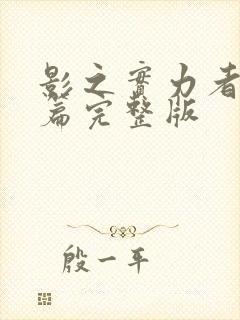 影之實力者
篇完整版
殷一平